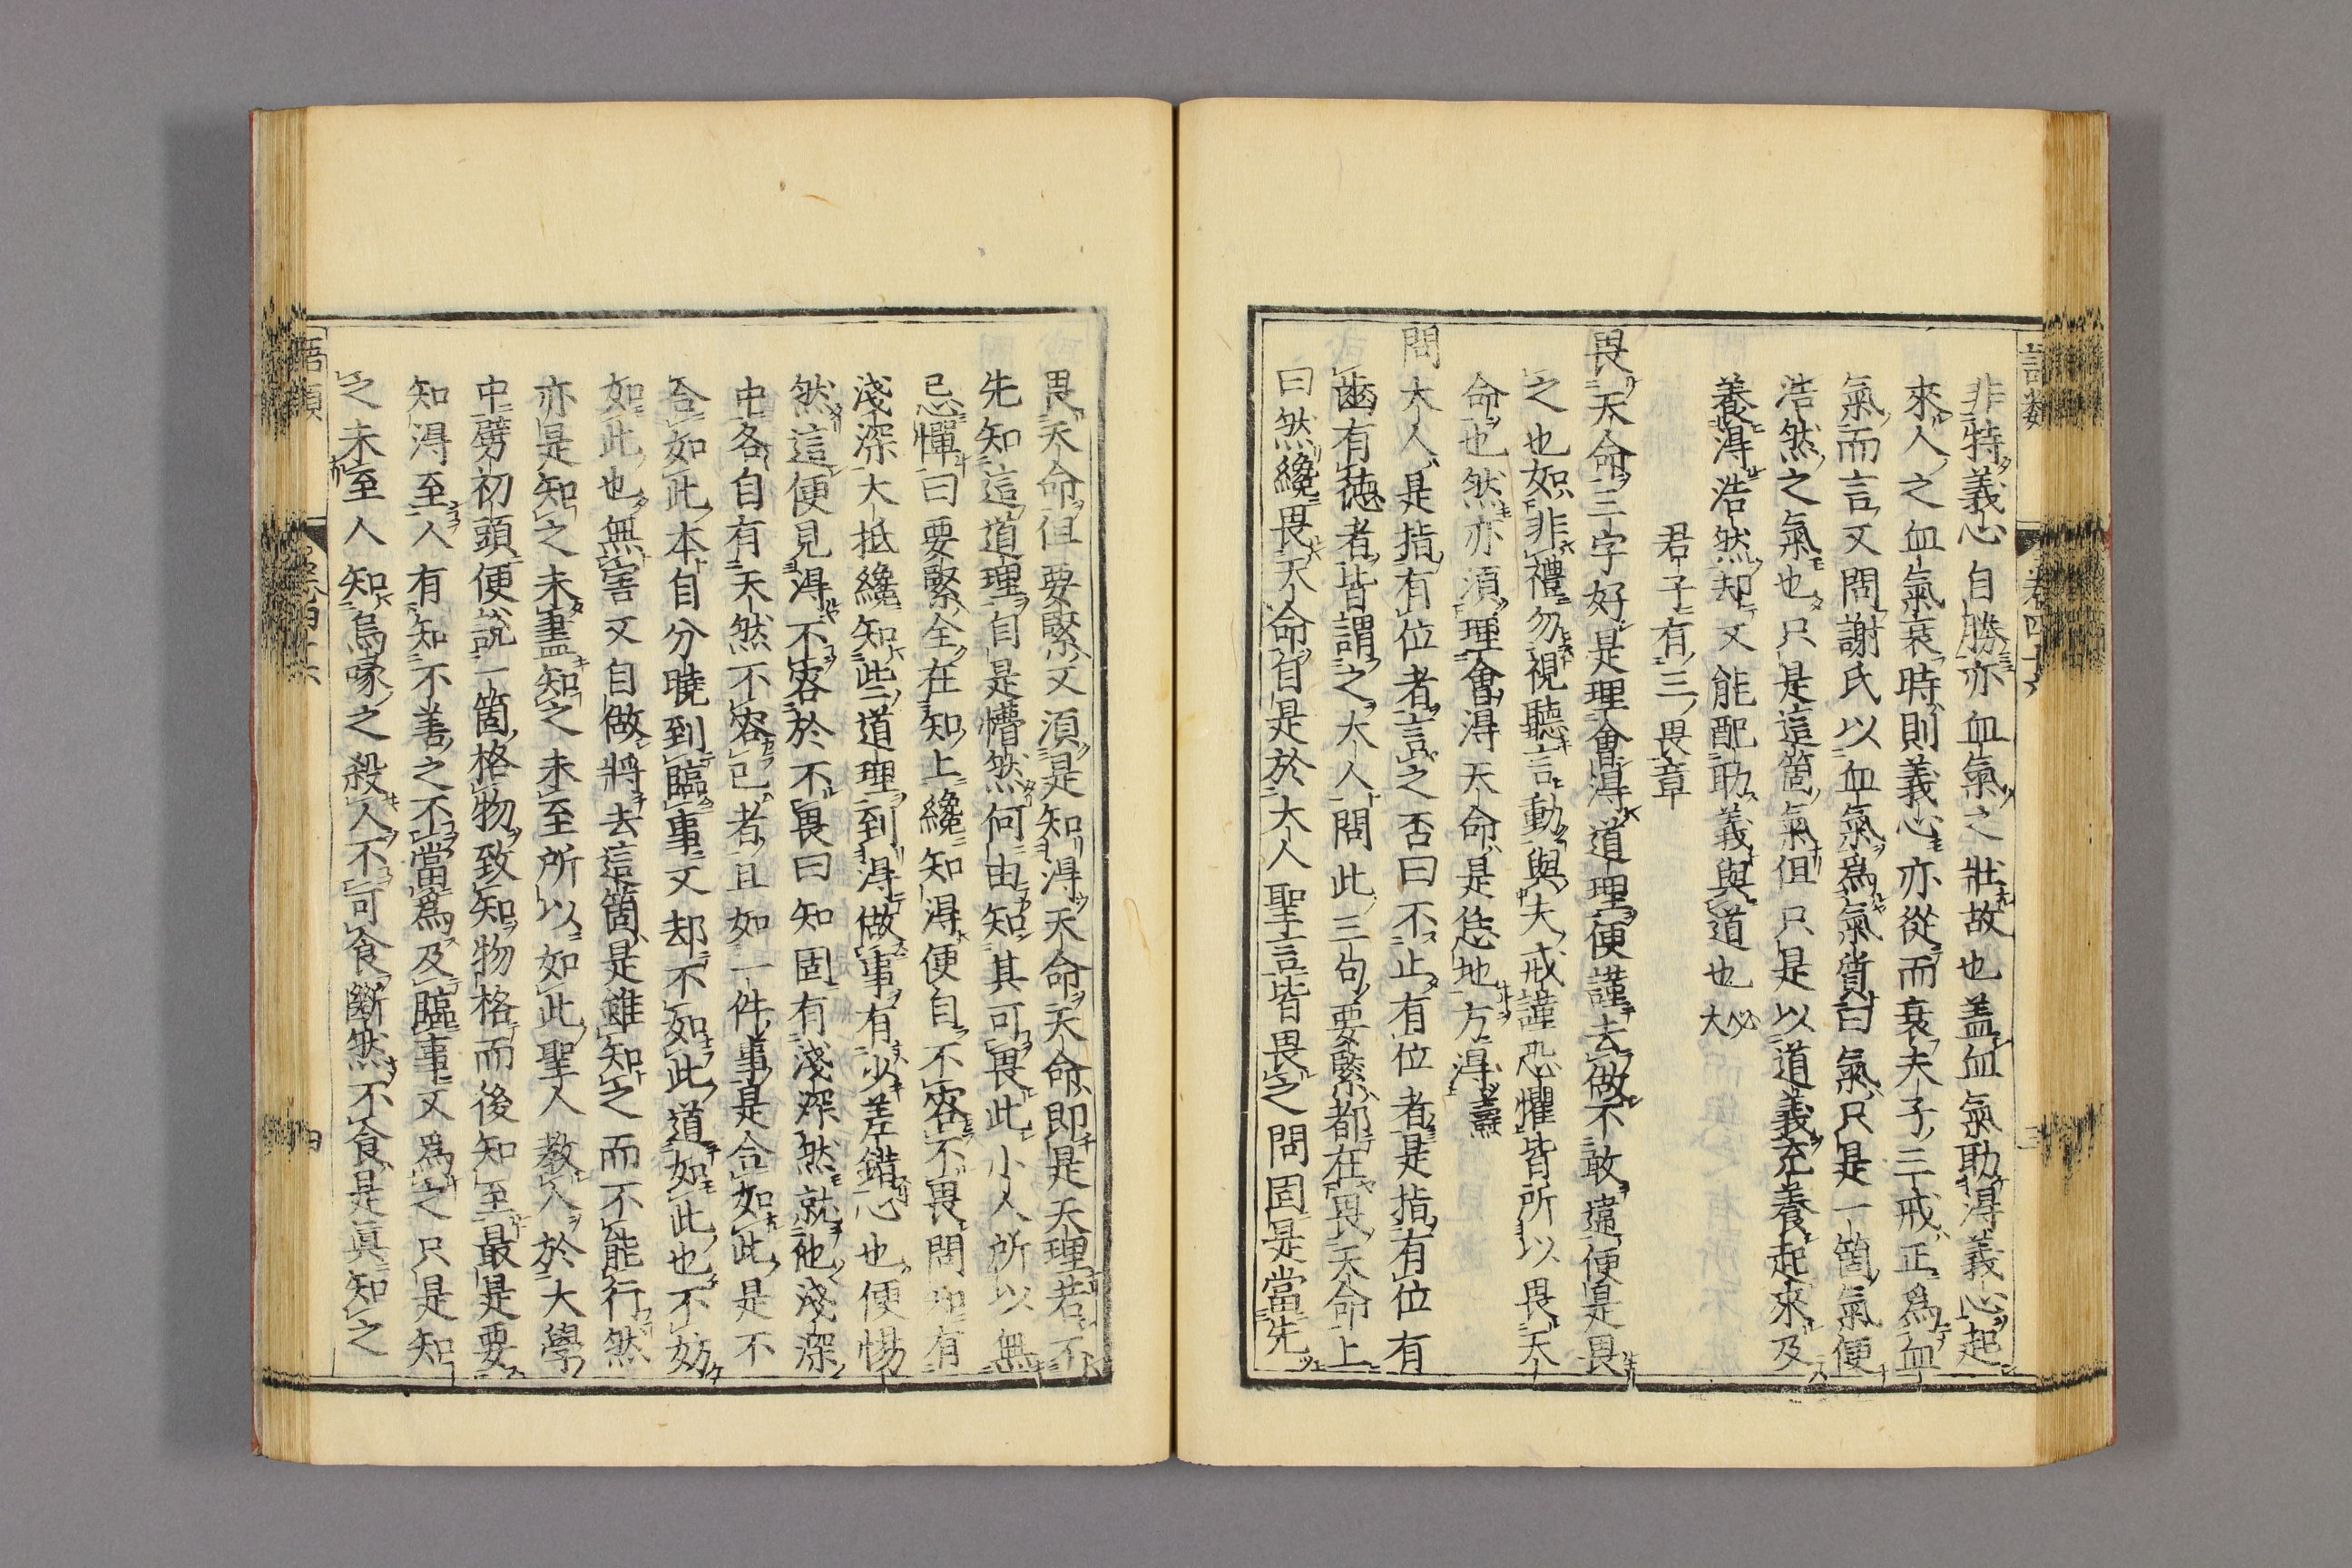 語類
卷四十六
非特義心自勝亦血氣之壯故也蓋血氣助得義心起
來人之血氣衰時則義心亦從而衰夫子三戒正爲血
氣而言又問謝氏以血氣爲氣質曰氣只是一箇氣便
浩然之氣也只是這箇氣但只是以道義充養起來及
養得浩然却又能配助義與道也
君子有三畏章
畏天命三字好是理會得道理便謹去做不敢違便是畏
之也如非禮勿視聽言動與夫戒謹恐懼皆所以畏天
命也然亦須理會得天命是恁地方得燾
問大人是指有位者言之否曰不止有位者是指有位有
齒有德者皆謂之大人問此三句要緊都在畏天命上
曰然纔畏天命自是於大人聖言皆畏之問固是當先
畏天命但要緊又須是知得天命天命即是天理若不
先知這道理自是懵然何由知其可畏此小人所以無
忌憚曰要緊全在知上纔知得便自不容不畏問知有
淺深大抵纔知些道理到得做事有少差錯心也便惕
然這便見得不容於不畏曰知固有淺深然就他淺深
中各自有天然不容已者且如一件事是合如此是不
合如此本自分曉到臨事又却不如此道如此也不妨
如此也無害又自做將去這箇是雖知之而不能行然
亦是知之未盡知之未至所以如此聖人教人於大學
中劈初頭便說一箇格物致知物格而後知至最是要
知得至人有知不善之不當爲及臨事又爲之只是知
之未至人知烏喙之殺人不可食斷然不食是眞知之
語類